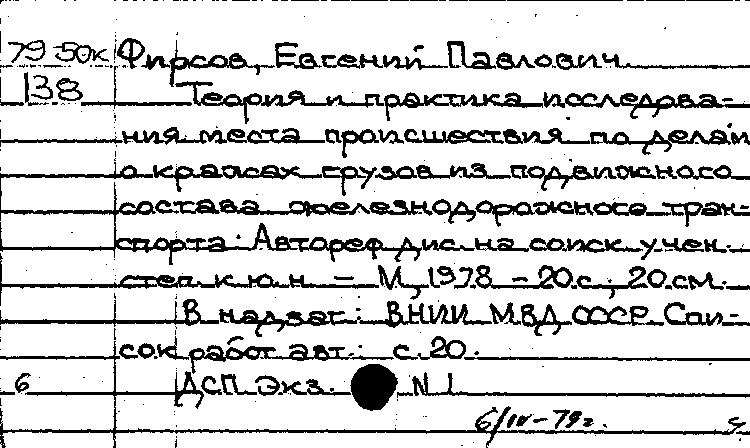 79-50к Фирсов, Евгений Павлович.
138 Теория и практика исследова-
ния места происшествия по делам
о кражах грузов из подвижного
состава железнодорожного тран-
спорта: Автореф дис. на соиск учен.
степ. к.ю.н. - М, 1978 - 20 с.; 20 см.
В надзаг.: ВНИИ МВД СССР. Спи-
сок работ авт.: с. 20.
6 ДСП. Экз. N 1
6/IV-79г.